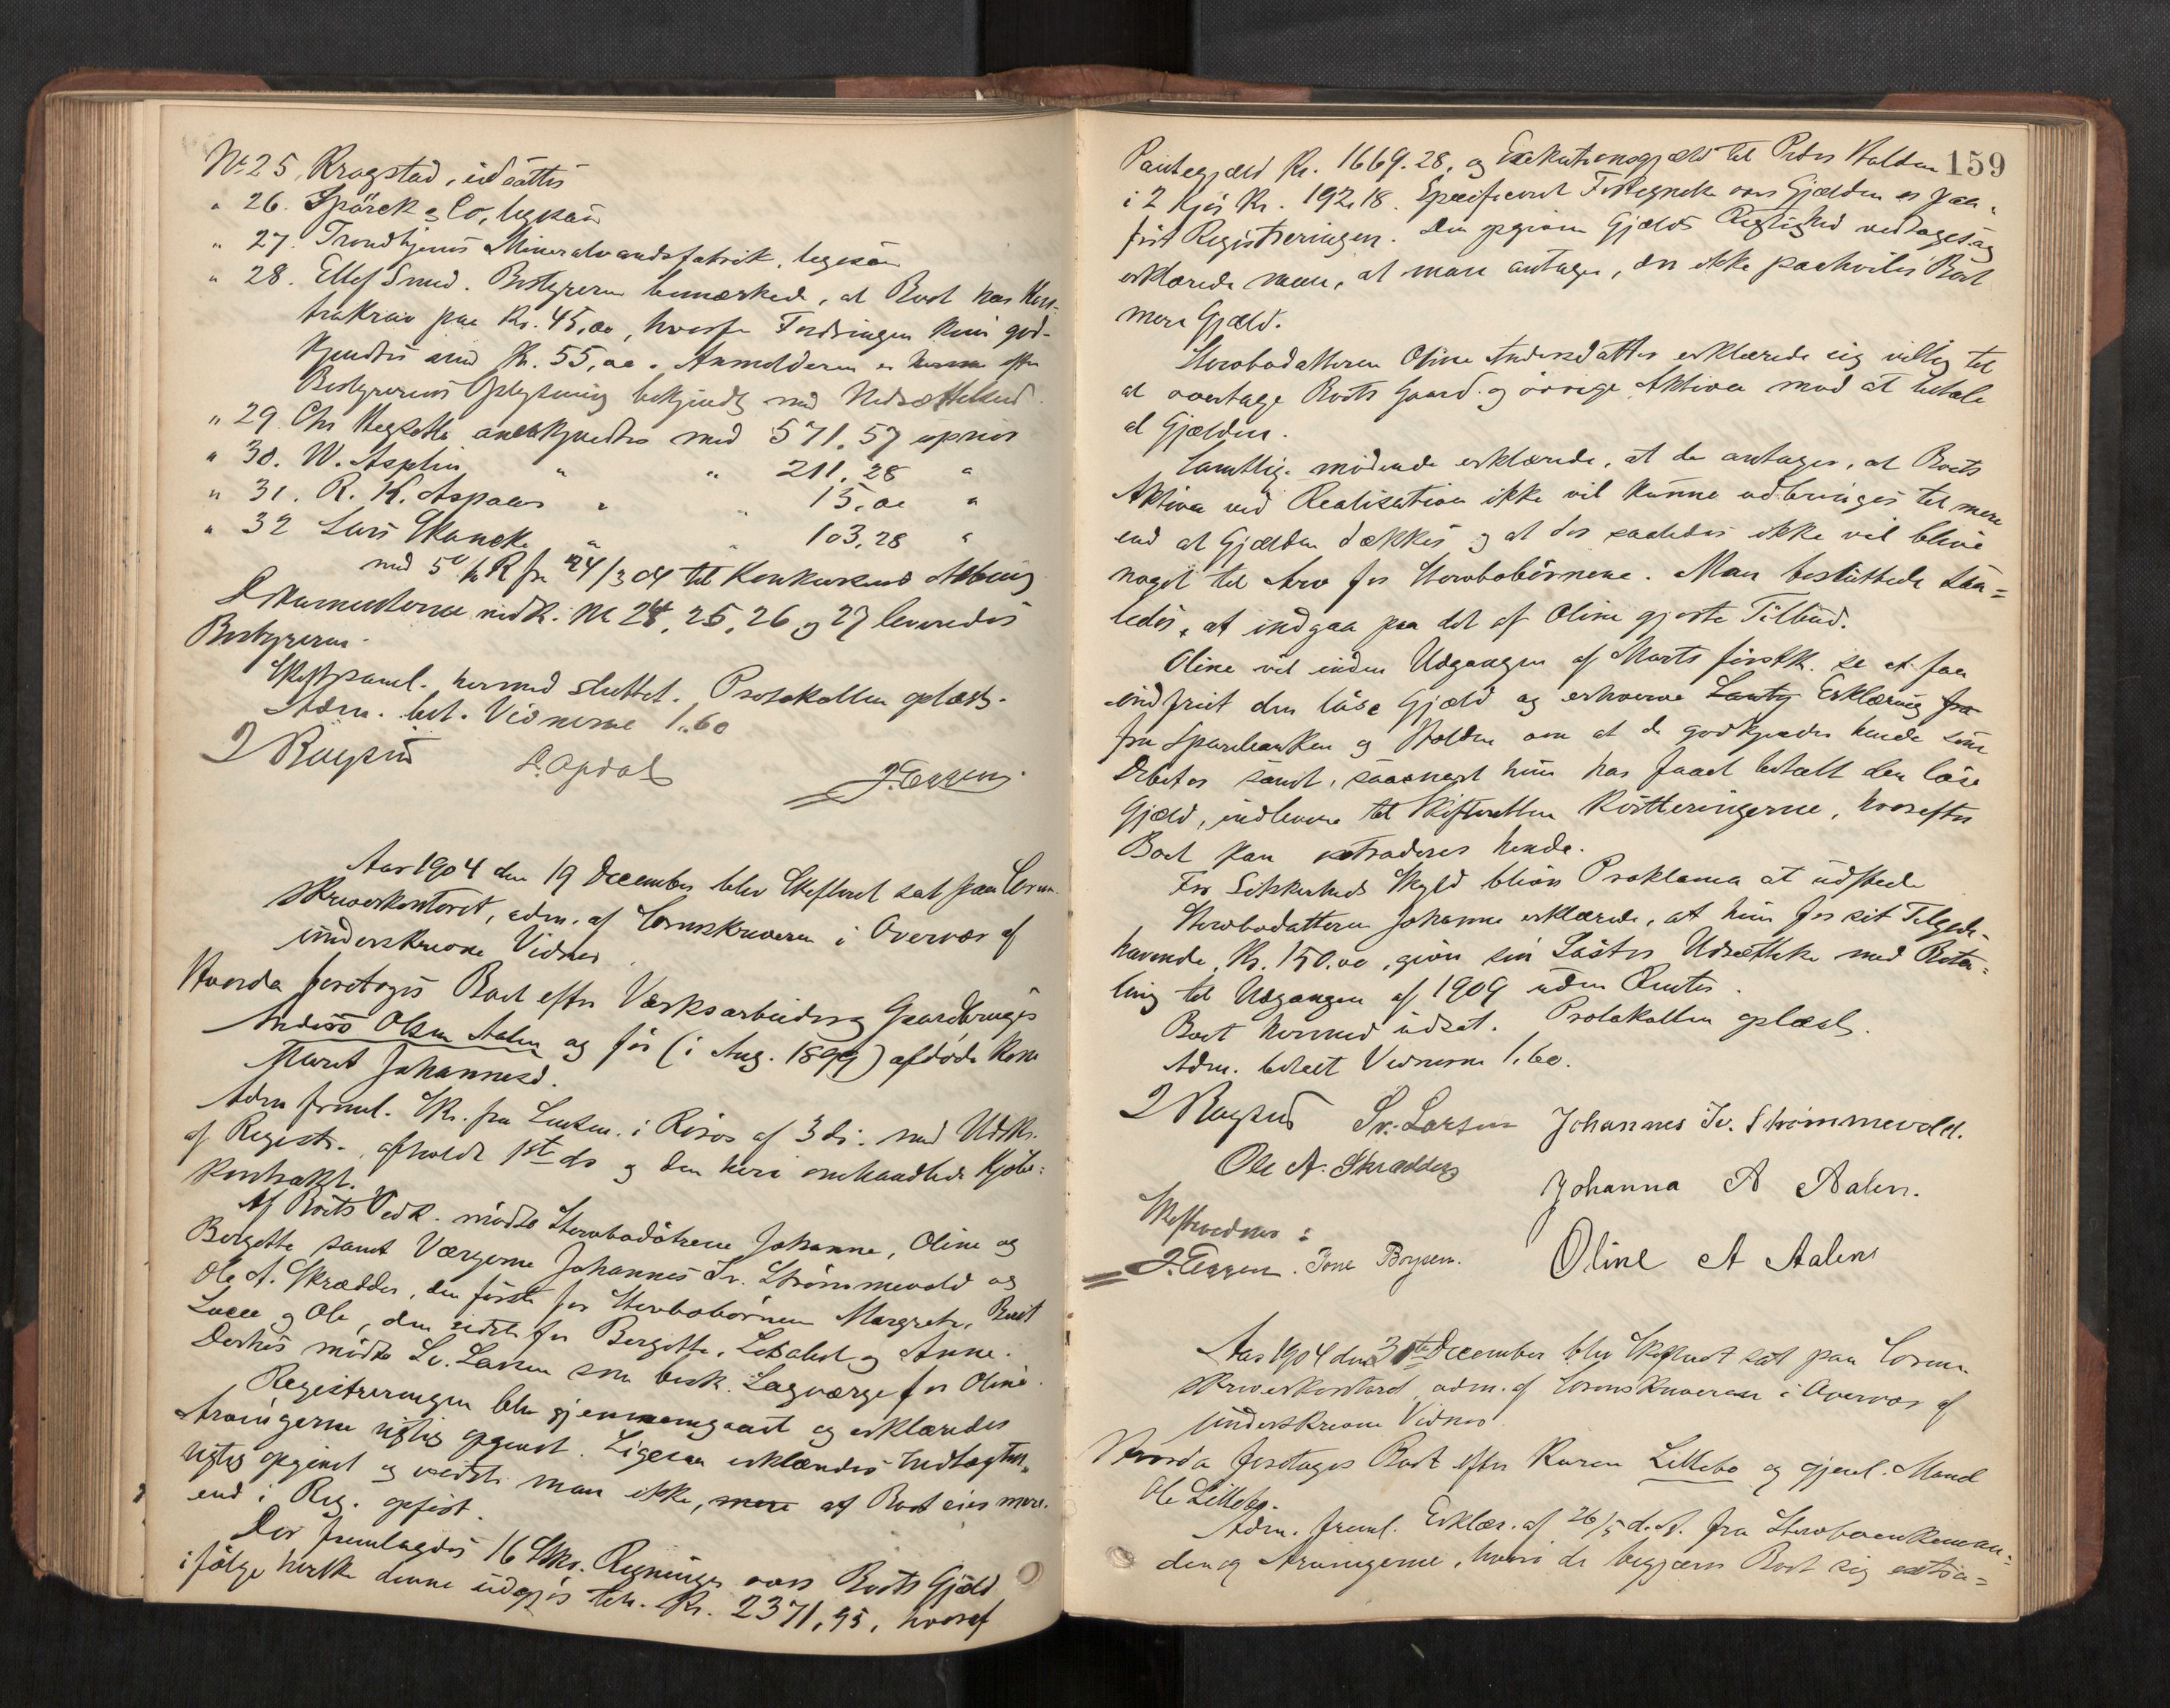 No 25, Kragstad, udsattes
" 26. Spärck & Co, ligesaa
" 27. Trondhjems Mineralvandsfabrik, ligesaa
" 28. Ellef Smed. Bestyreren bemærkede, at Boet har
trakrav paa Kr. 45,00, hvorfor Fordringen kun god-
kjendtes med Kr. 55,00. Anmelderen er efter
Bestyrerens Oplysning bekjendt med Nedsættelsen.
" 29 Chr anerkjendtes med 571.57 uprior
" 30. W. Asplin " " 211.28 "
" 31. R. K. Aspaas " " 15.00 "
" 32 Lars Skancke " " 103.28 "
med 5% R fra 24/3 04 til Konkursens Aabning
Dokumenterne vedk. No 24, 25, 26 og 27 leveredes
Bestyreren.
Skiftesaml. hermed sluttet. Protokollen oplæst.
Adm. bet. Vidnerne 1.60
O. Opdal J. Eggen
Aar 1904 den 19 December blev Skifteret sat paa Soren-
skriverkontoret, adm. af Sorenskriveren i Overvær af
underskrevne Vidner
Hvorda foretoges Boet efter Værksarbeider og Gaardbruger
Anders Olsen Aalen og før (i Aug. 1899) afdøde Kone
Marit Johannesd.
Adm freml. Skr. fra Lensm. i Røros af 3 ds. med Udskr.
af Registr. afholdt 1st ds og den heri omhandlede Kjøbe-
kontrakt.
Af Boets Vedk. mødte Stervbodøtrene Johanne, Oline og
Bergette samt Værgerne Johannes Iv. Strømmevold og
Ole A. Skrædder, den første for Stervbobørnene Margrete, Berit
Lucie og Ole, den sidste for Bergitte, Lisabet og Anne.
Derhos mødte Sv. Larsen som besk. Lagværge for Oline.
Registreringen blev gjennemgaaet og erklæredes
Arvingerne rigtig opgivet. Ligesaa erklæredes Indtægter
rigtig opgivet og vidste man ikke, mere at Boet eier mere
end i Reg. opført.
Der fremlagdes 16 Stkr. Regninger over Boets Gjæld
ifølge hvilke denne udgjør tils. Kr. 2371,95, hvoraf
159
Pantegjæld Kr. 1669.28, og Exekutionsgjæld til Peder Holden
i 2 Kjør Kr. 192.18. Specificeret Fortegnelse over Gjælden er paa-
ført Registreringen. Den opgivne Gjælds Rigtighed vedtages og
erklærede man, at man antager, der ikke paahviler Boet
mere Gjæld.
Stervbodatteren Oline Andersdatter erklærede sig villig til
at overtage Boets Gaard og øvrige Aktiva mod at betale
al Gjælden.
Samtlige mødende erklærede, at de antager, at Boets
Aktiva ved Realisation ikke vil kunne udbringes til mere
end at Gjælden dækkes og at der saaledes ikke vil blive
noget til Arv for Stervbobørnene. Man besluttede saa=
ledes, at indgaa paa det af Oline gjorte Tilbud.
Oline vil inden Udgangen af Marts førstk. se at faa
indfriet den løse Gjæld og erhverve Erklæring fra
fra Sparebanken og Holden om at de godkjender hende som
Debitor samt, saasnart hun har faaet betalt den løse
Gjæld, indlevere til Skifteretten Kvitteringerne, hvorefter
Boet kan extraderes hende.
For Sikkerheds Skyld bliver Proklama at udstede
Stervbodatteren Johanne erklærede, at hun for sit Tilgode-
havende, Kr. 150.00, giver sin Søster Udsættelse med Beta=
ling til Udgangen af 1909 uden Renter.
Boet hermed udsat. Protokollen oplæst.
Adm. betalt Vidnerne 1.60.
Sv. Larsen Johannes Iv. Strømmevold.
Ole A. Skrædder
Johanna A Aalen.
Skiftevidner:
J. Eggen. Jens Borgsen. Oline A Aalen
Aar 1904 den 30te December blev Skifteret sat paa Soren-
skriverkontoret, adm. af Sorenskriveren i Overvær af
underskrevne Vidner
Hvorda foretoges Boet efter Karen Lillebo og gjenl. Mand
Ole Lillebo.
Adm. freml. Erklær. af 26/5 d.A. fra Stervboenkeman=
den og Arvingerne, hvori de begjærer Boet sig extra=